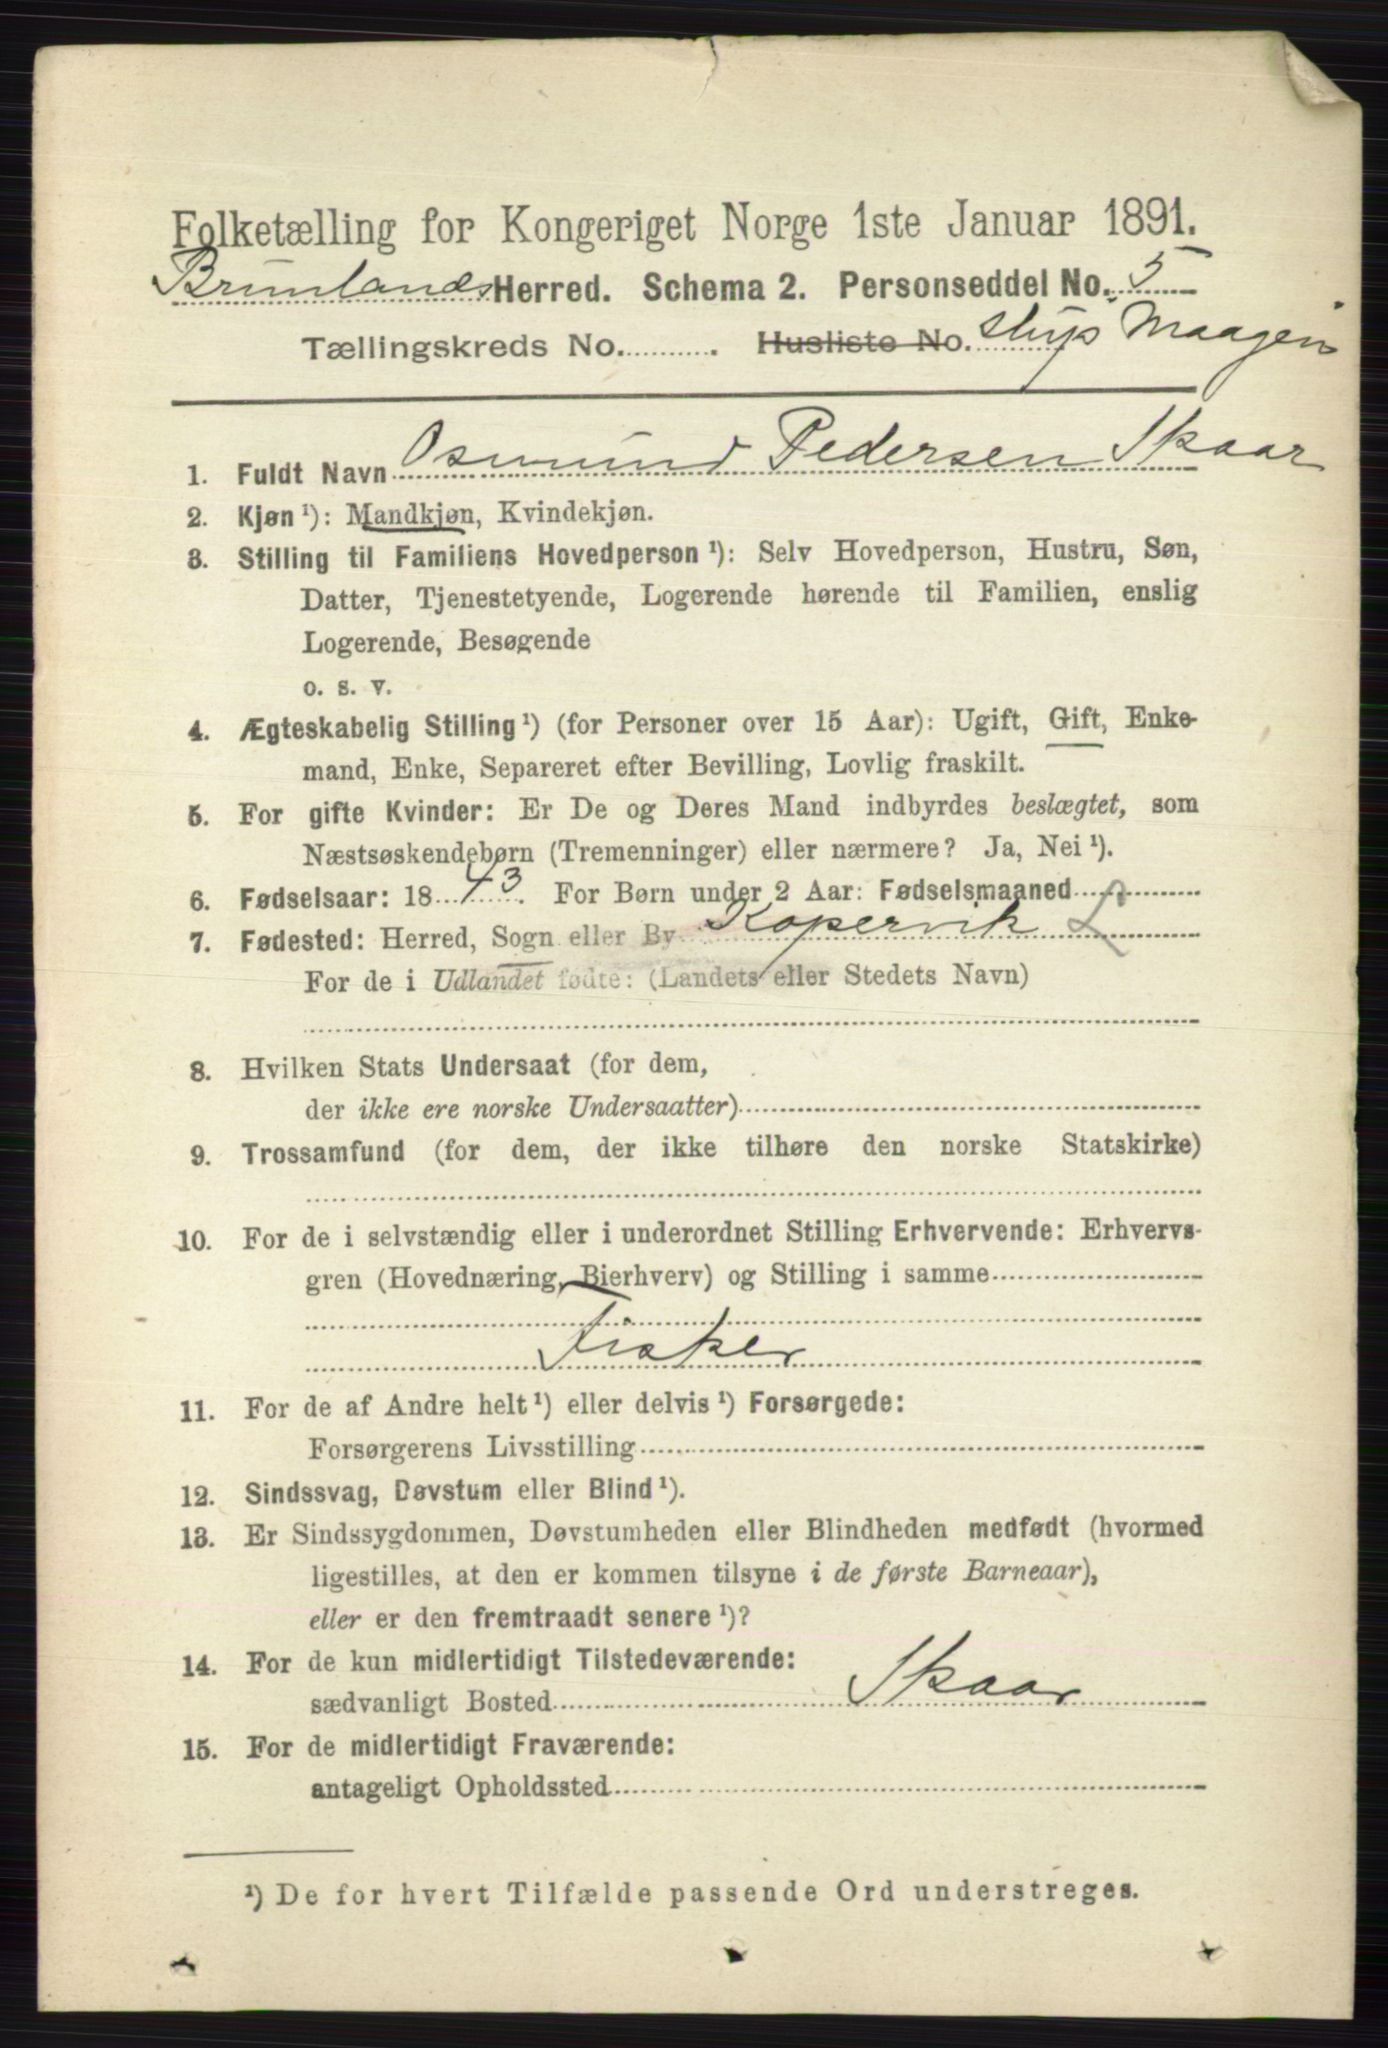 Folketælling for Kongeriget Norge 1ste Januar 1891.
Brunlands Herred. Schema 2. Personseddel No. 5
Tællingskreds No. ........... . Husliste No. Skip Maagen
1. Fuldt Navn Osmund Pedersen Skaar
2. Kjøn ¹): Mandkjøn, Kvindekjøn.
3. Stilling til Familiens Hovedperson ¹): Selv Hovedperson, Hustru, Søn,
Datter, Tjenestetyende, Logerende hørende til Familien, enslig
Logerende, Besøgende
o. s. v.
4. Ægteskabelig Stilling ¹) (for Personer over 15 Aar): Ugift, Gift, Enke-
mand, Enke, Separeret efter Bevilling, Lovlig fraskilt.
5. For gifte Kvinder: Er De og Deres Mand indbyrdes beslægtet, som
Næstsøskendebørn (Tremenninger) eller nærmere? Ja, Nei ¹).
6. Fødselsaar: 18 43. For Børn under 2 Aar: Fødselsmaaned
7. Fødested: Herred, Sogn eller By Kopervik L
For de i Udlandet fødte: (Landets eller Stedets Navn)
8. Hvilken Stats Undersaat (for dem,
der ikke ere norske Undersaatter)
9. Trossamfund (for dem, der ikke tilhøre den norske Statskirke)
10. For de i selvstændig eller i underordnet Stilling Erhvervende: Erhvervs-
gren (Hovednæring, Bierhverv) og Stilling i samme
Fisker
11. For de af Andre helt ¹) eller delvis ¹) Forsørgede:
Forsørgerens Livsstilling
12. Sindssvag, Døvstum eller Blind ¹).
13. Er Sindssygdommen, Døvstumheden eller Blindheden medfødt (hvormed
ligestilles, at den er kommen tilsyne i de første Barneaar),
eller er den fremtraadt senere ¹)?
14. For de kun midlertidigt Tilstedeværende:
sædvanligt Bosted Skaar
15. For de midlertidigt Fraværende:
antageligt Opholdssted
¹) De for hvert Tilfælde passende Ord understreges.